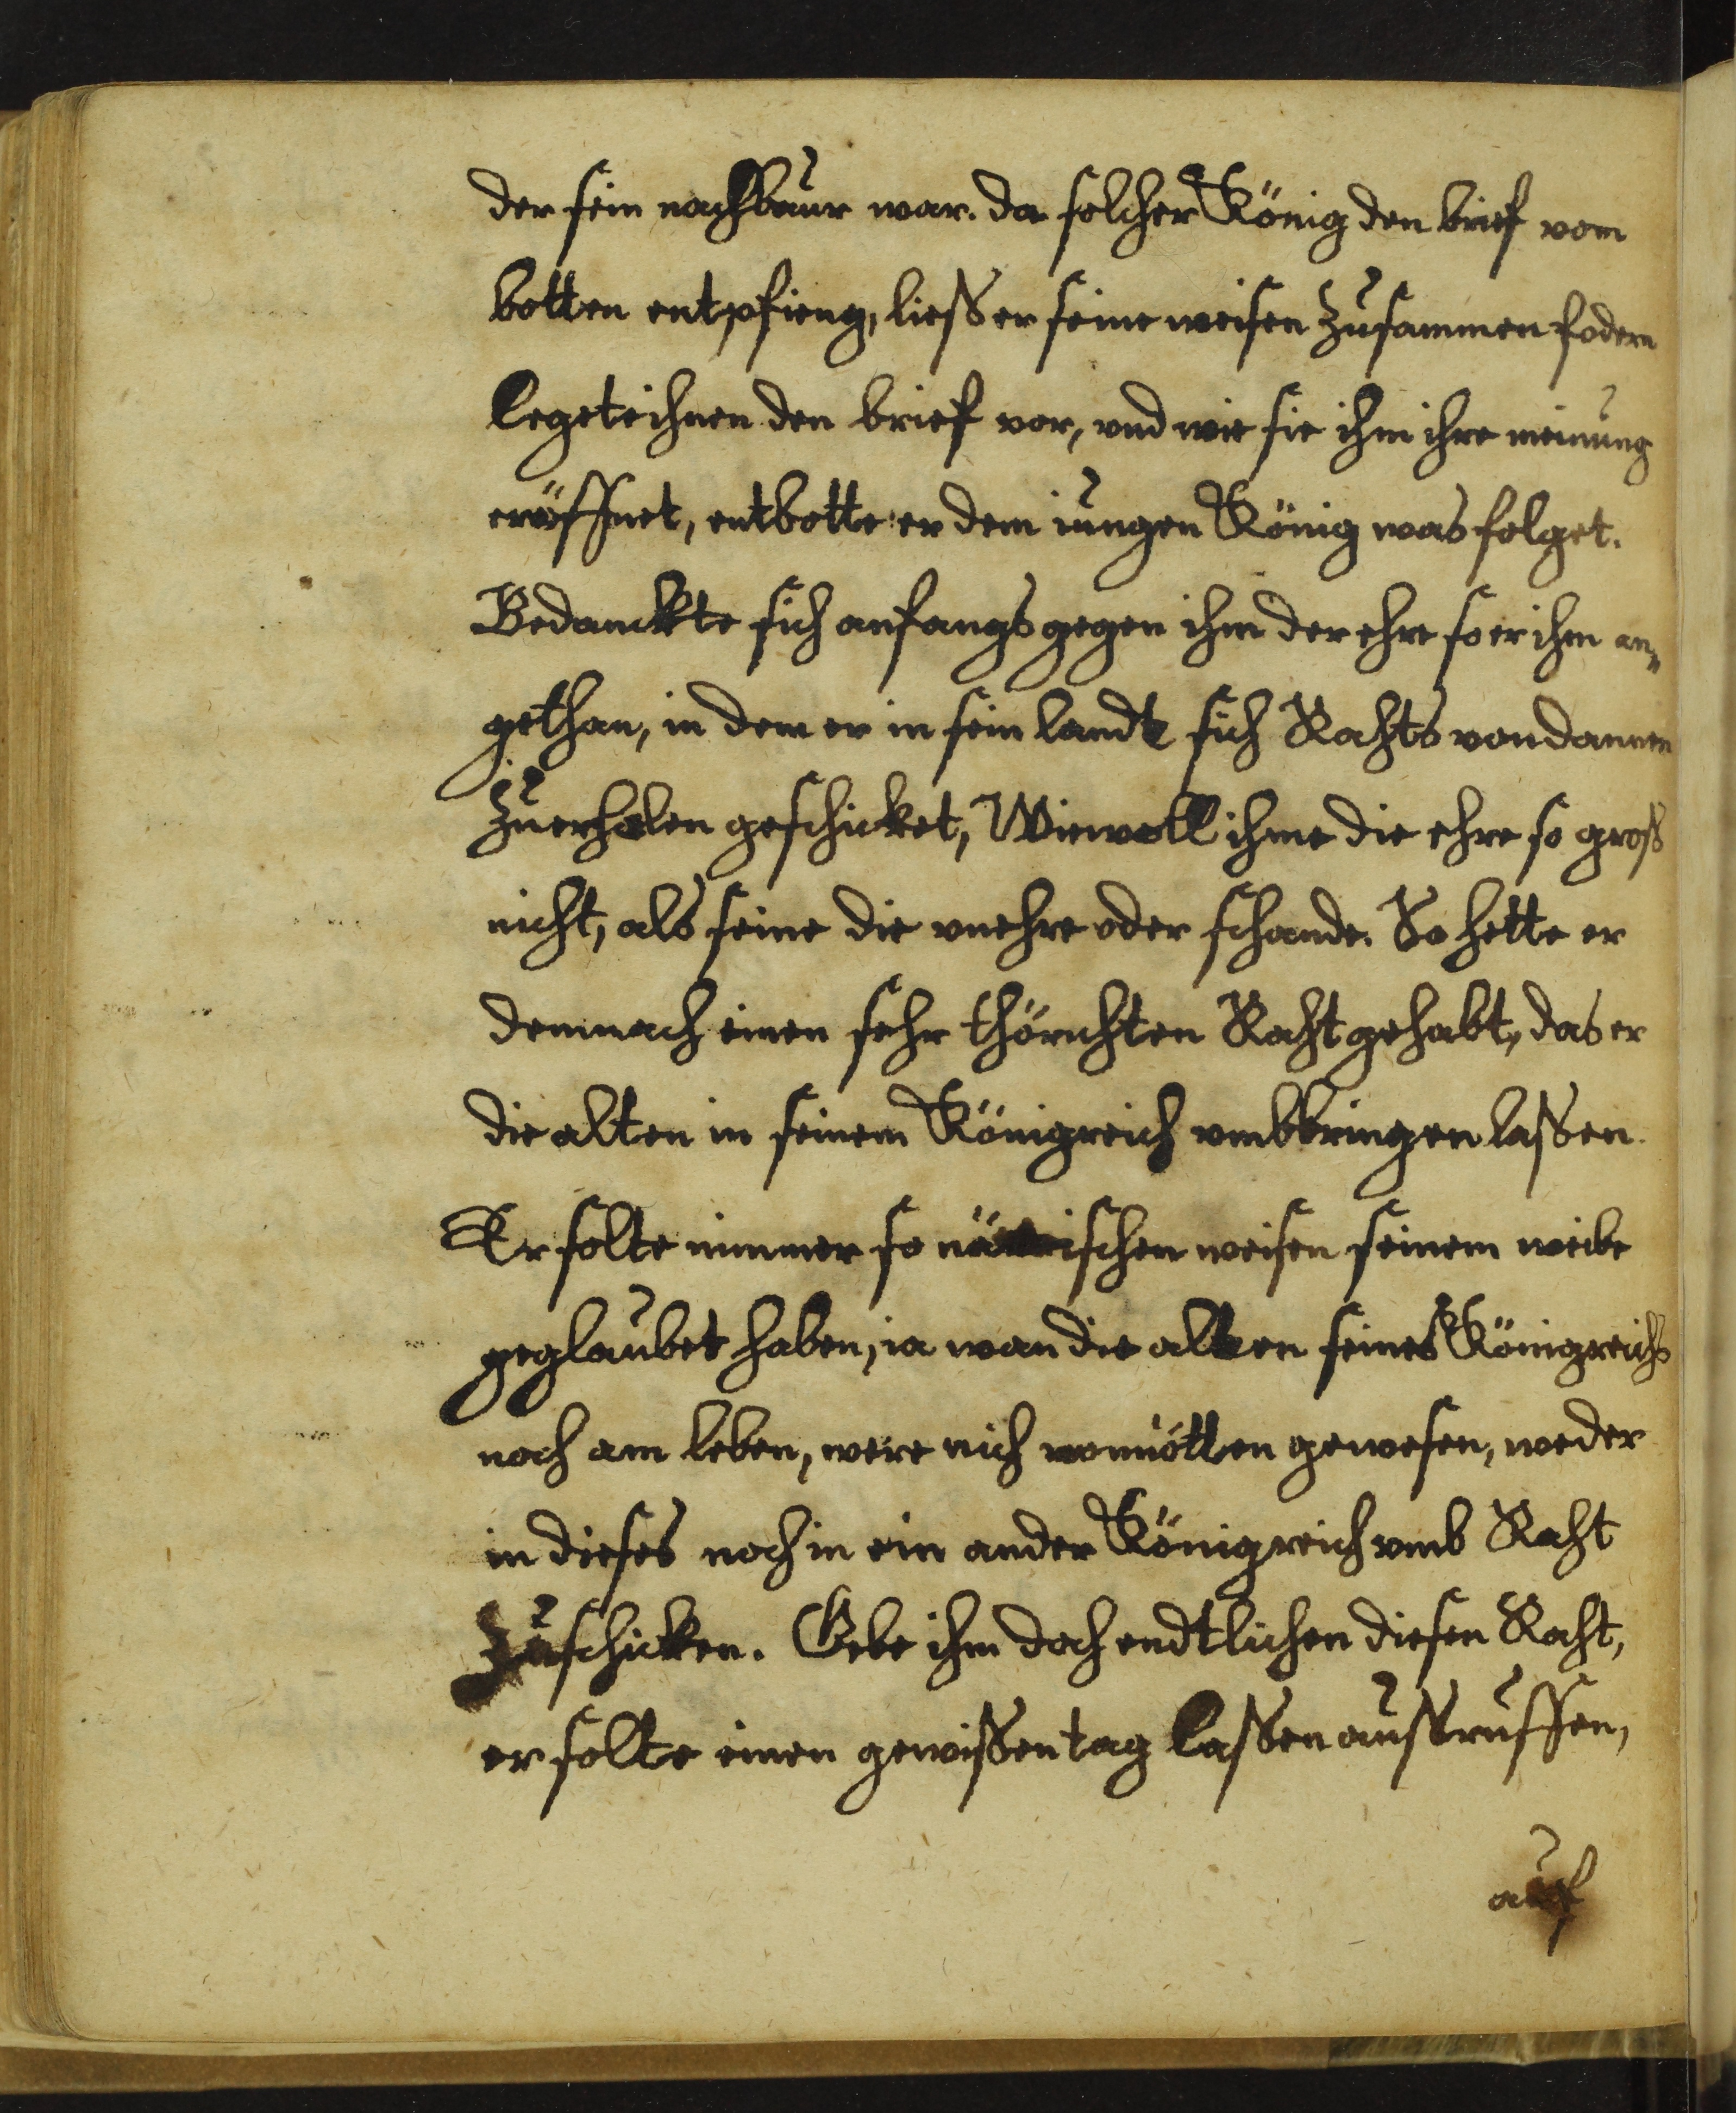 der sein nachbaur war. da solcher König den brief vom
botten entpfieng, liess er seine weisen zusammen fodern
legete ihnen den brief vor, vnd wie sie ihm ihre meinung
eröffnet, entbotte er dem iungen König was folget.
Bedanckte sich anfangs gegen ihm der ehre so er ihm an„
gethan, in dem er in sein landt sich Rahts von dannen
zu erholen geschicket, Wiewoll ihme die ehre so gross
nicht, als seine die vnehre oder schande. So hette er
demnach einen sehr thörichten Raht gehabt, das er
die alten in seinem Königreich vmbbringen lassen.
Er solte nimmer so närrischen weisen seinem weibe
geglaubet haben, ia wan die alten seines Königreichs
noch am leben, were nich vonnötten gewesen, weder
in dieses noch in ein ander Königreich vmb Raht
zu schicken. Gebe ihm doch endtlichen diesen Raht,
er solte einen gewissen tag lassen aussruffen,
auf